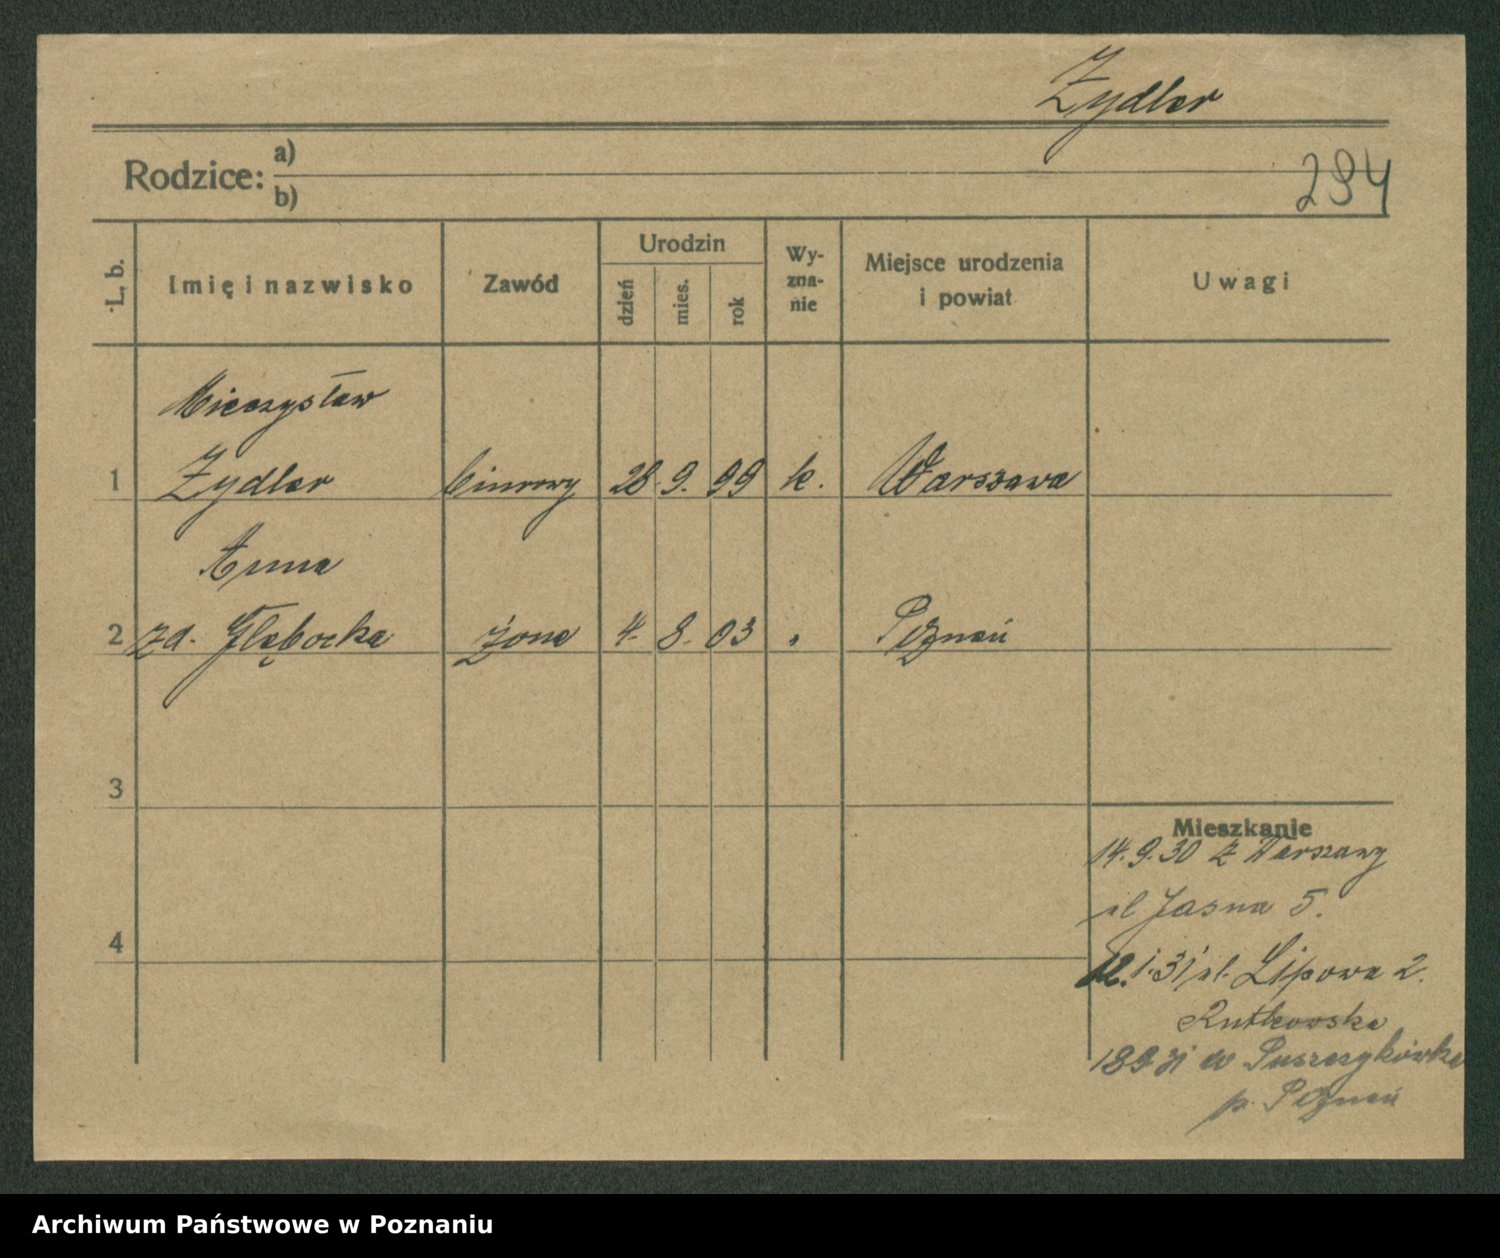 Zydler
Rodzice: a)
b)
294
L. b.
Imię i nazwisko
Zawód
Urodzin
dzień
mies.
rok
Wy-
zna-
nie
Miejsce urodzenia
i powiat
Uwagi
Mieczysław
1 Zydler biurowy 28. 9. 99 k. Warszawa
Anna
2 zd. Głębocka żona 4. 8. 03 " Poznań
3
4
Mieszkanie
14.9.30 z Warszawy
ul Jasna 5.
12.1.31 ul. Lipowa 2.
Rutkowska
189 31 w Puszczykówko
p. Poznań
Archiwum Państwowe w Poznaniu